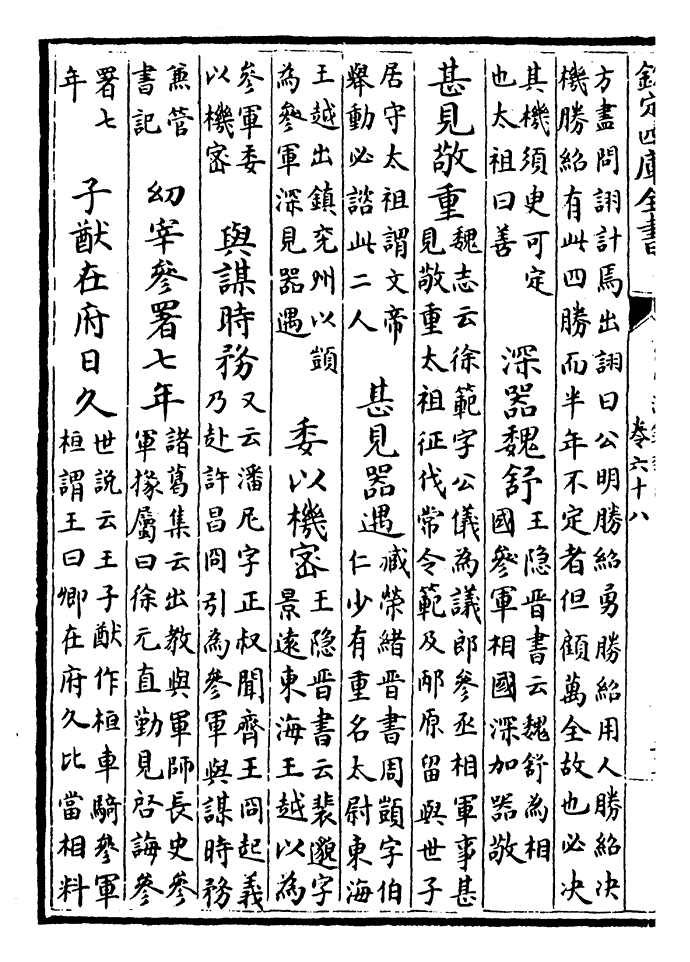 欽定四庫全書
卷六十八
方盡問詡計焉出詡曰公明勝紹勇勝紹用人勝紹决
機勝紹有此四勝而半年不定者但顧萬全故也必决
其機須臾可定
也太祖曰善
深器魏舒
王隐晉書云魏舒為相
國參軍相國深加器敬
甚見敬重
魏志云徐範字公儀為議郎參丞相軍事甚
見敬重太祖征伐常令範及邴原留與世子
居守太祖謂文帝
舉動必諮此二人
甚見器遇
臧榮緒晉書周顗字伯
仁少有重名太尉東海
王越出鎮兖州以顗
為參軍深見器遇
委以機密
王隐晉書云裴邈字
景遠東海王越以為
參軍委
以機密
與謀時務
又云潘尼字正叔聞齊王冏起義
乃赴許昌冏引為參軍與謀時務
兼管
書記
幼宰參署七年
諸葛集云出教與軍師長史參
軍掾屬曰徐元直勤見啓誨參
署七
年
子猷在府日久
世說云王子猷作桓車騎參軍
桓謂王曰卿在府久比當相料